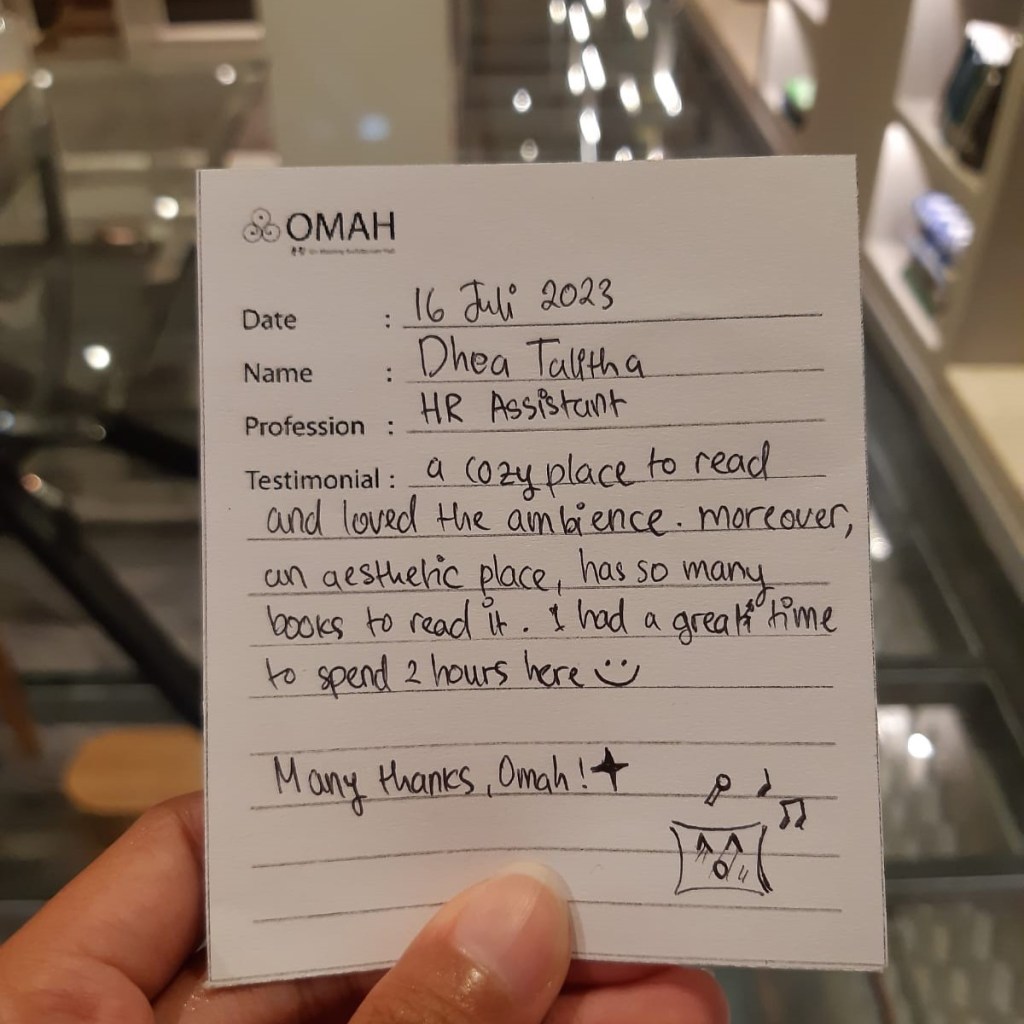 OMAH
Date : 16 Juli 2023
Name : Dhea Talitha
Profession : HR Assistant
Testimonial : a cozy place to read
and loved the ambience. moreover,
an aesthetic place, has so many
books to read it. I had a great time
to spend 2 hours here
Many thanks, Omah!